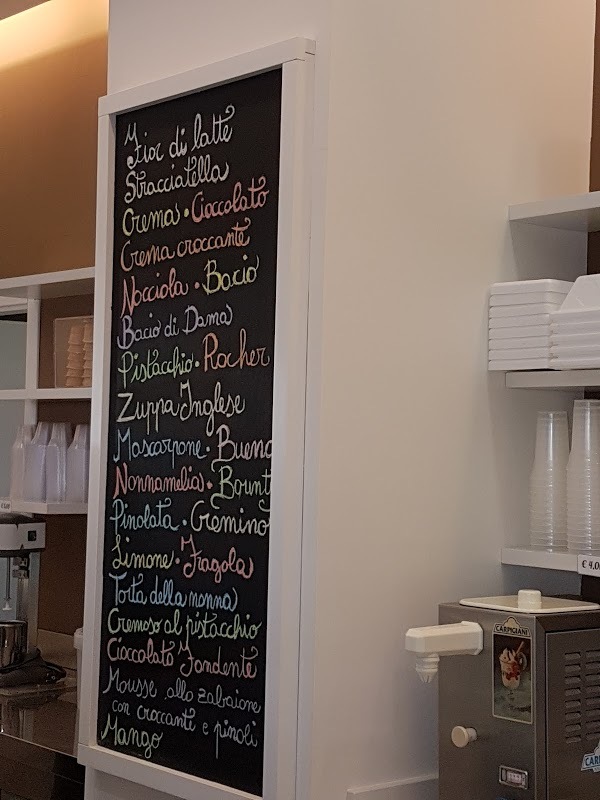 Fior di latte
Stracciatella
Crema • Cioccolato
Crema croccante
Nocciola • Bacio
Bacio di Dama
Pistacchio • Rocher
Zuppa Inglese
Mascarpone • Bueno
Nonnamelia • Bount
Pinolata • Cremino
Limone • Fragola
Torta della nonna
Cremoso al pistacchio
Cioccolato Fondente
Mousse allo zabaione
con croccante e pinoli
Mango
CARPIGIANI